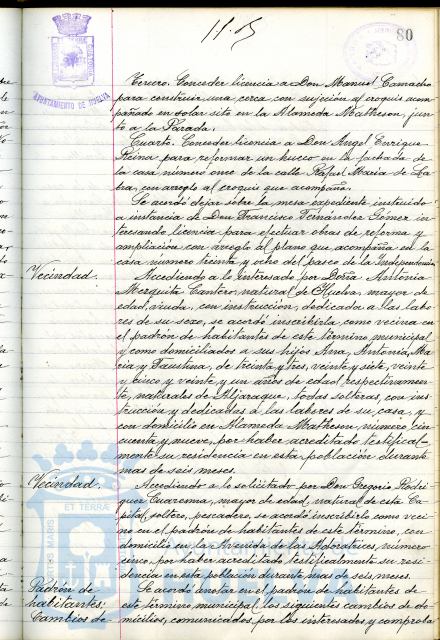 11.05
80
AYUNTAMIENTO DE HUELVA
Tercero. Conceder licencia a Don Manuel Camacho
para construir una cerca con sujeción al croquis acom-
pañado en solar sito en la Alameda Matheson, jun-
to a la Parada.
Cuarto. Conceder licencia a Don Angel Enrique
Reina para reformar un hueco en la fachada de
la casa número once de la calle Rafael Maria de La-
bra, con arreglo al croquis que acompaña.
Se acordó dejar sobre la mesa expediente instruido
a instancia de Don Francisco Fernández Gómez in-
teresando licencia para efectuar obras de reforma y
ampliación con arreglo al plano que acompaña en la
casa número treinta y ocho del paseo de la Independencia
Vecindad. Accediendo a lo interesado por Doña Antonia
Mezquita Cantero, natural de Huelva, mayor de
edad, viuda, con instrucción, dedicada a las labo-
res de su sexo, se acordó inscribirla como vecina en
el padrón de habitantes de este término municipal
y como domiciliados a sus hijos Ana, Antonia, Ma-
ria y Faustina, de treinta y tres, veinte y siete, veinte
y cinco y veinte y un años de edad respectivamen-
te, naturales de Aljaraque, todas solteras, con ins-
trucción y dedicadas a las labores de su casa, y
con domicilio en Alameda Matheson, número cin-
cuenta y nueve, por haber acreditado testifical-
mente su residencia en esta población durante
mas de seis meses.
Vecindad. Accediendo a lo solicitado por Don Gregorio Rodri-
guez Cuaresma, mayor de edad, natural de esta Ca-
pital, soltero, pescadero, se acordó inscribirlo como veci-
no en el padrón de habitantes de este término, con
domicilio en la Avenida de las Adoratrices, número
cinco, por haber acreditado testifialmente su resi-
dencia en esta población durante mas de seis meses.
Padrón de Se acordó anotar en el padrón de habitantes de
habitantes; este término municipal los siguientes cambios de do-
Cambios de micilios, comunicados por los interesados y comproba